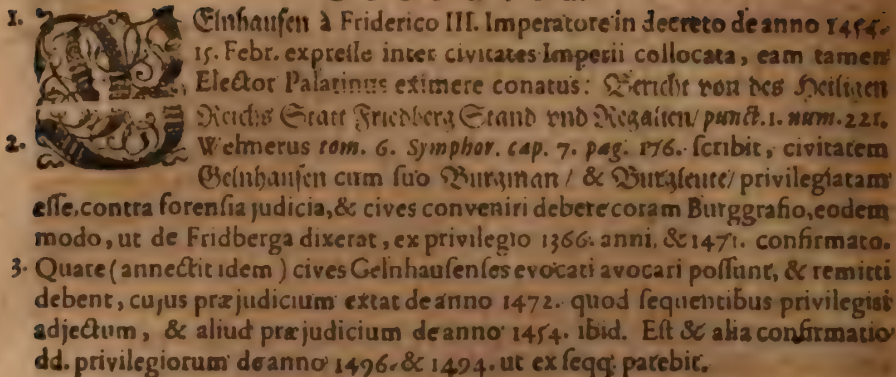 1. GElnhausen à Friderico III. Imperatore in decreto de anno 1454.
15. Febr. expresse inter civitates Imperii collocata, eam tamen
Elector Palatinus eximere conatus: Bericht von des Heiligen
Reichs Statt Friedberg Stand vnd Regalien/ punct. 1. num. 221.
2. Wehnerus tom. 6. Symphor. cap. 7. pag. 176. scribit, civitatem
Gelnhausen cum suo Burgman / & Burgleute/ privilegiatam
esse, contra forensia judicia, & cives conveniri debere coram Burggrafio, eodem
modo, ut de Fridberga dixerat, ex privilegio 1366. anni, & 1471. confirmato.
3. Quare (annectit idem) cives Gelnhausenses evocati avocari possunt, & remitti
debent, cujus præjudicium extat de anno 1472. quod sequentibus privilegiis
adjectum, & aliud præjudicium de anno 1454. ibid. Est & alia confirmatio
dd. privilegiorum de anno 1496. & 1494. ut ex seqq. patebit.